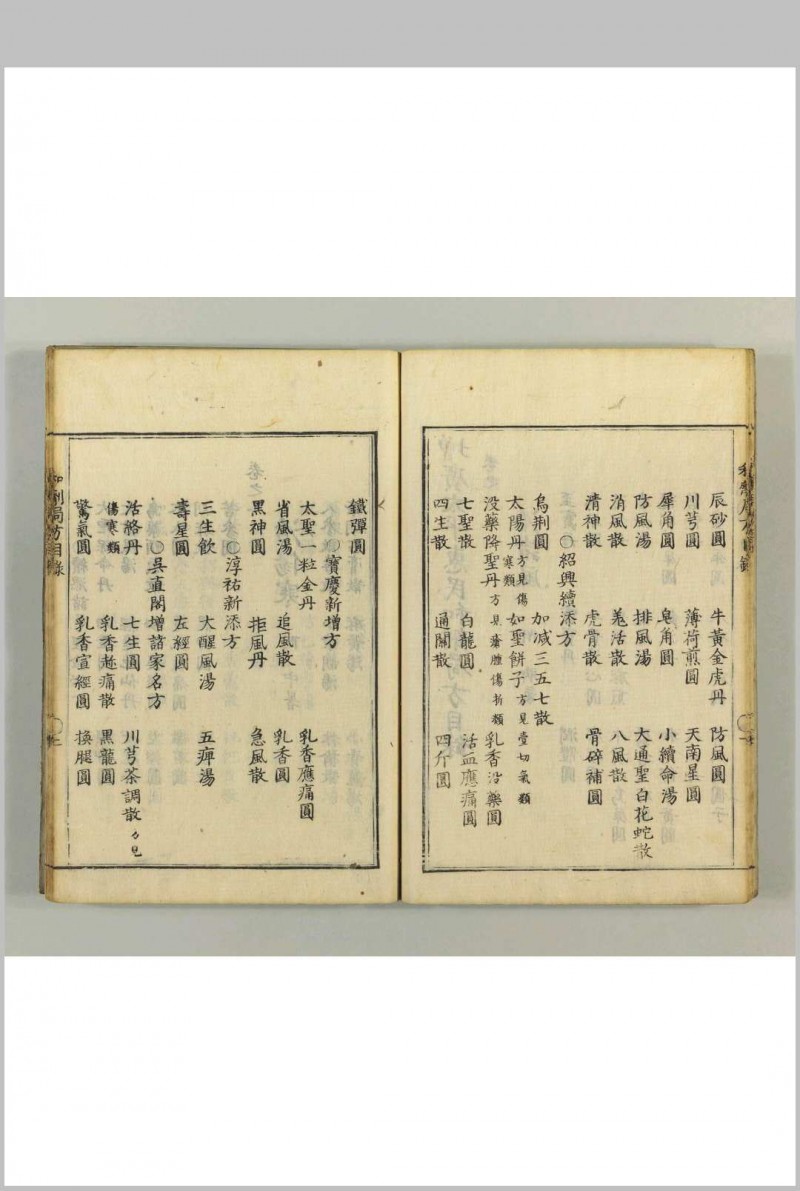 辰砂圓 牛黃金虎丹 防風圓
川芎圓 薄荷煎圓 天南星圓
犀角圓 皂角圓 小續命湯
防風湯 排風湯 大通聖白花蛇散
消風散 羗活散 八風散
清神散 虎骨散 骨碎補圓
○紹興續添方
烏荆圓 加减三五七散
太陽丹方見傷寒類 如聖餅子方見一切氣類
没藥降聖丹方見瘡腫傷折類 乳香没藥圓
七聖散 白龍圓 活血應痛圓
四生散 通關散 四斤圓
鐵彈圓
○寶慶新增方
太聖一粒金丹 乳香應痛圓
省風湯 追風散 乳香圓
黑神圓 拒風丹 急風散
○淳祐新添方
三生飲 大醒風湯 五痺湯
壽星圓 左經圓
○吳直閣增諸家名方
活絡丹 七生圓 川芎茶調散方見
傷寒類 乳香趂痛散 黑龍圓
驚氣圓 乳香宣經圓 換腿圓
和劑局方目錄